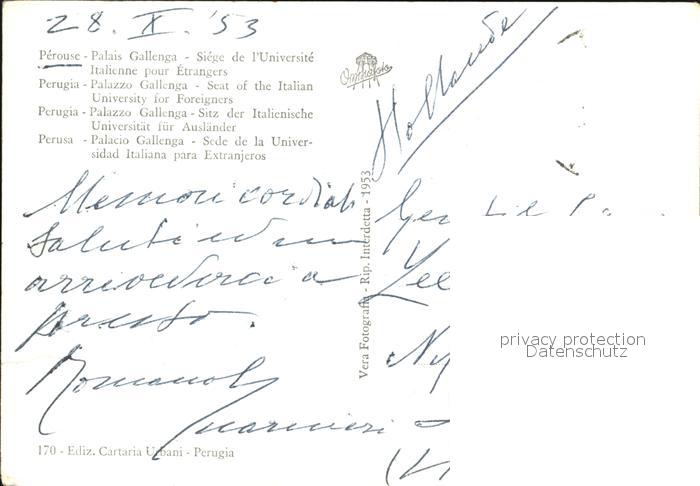 28. X. '53
Pérouse - Palais Gallenga - Siége de l'Université
Italienne pour Étrangers
Perugia - Palazzo Gallenga - Seat of the Italian
University for Foreigners
Perugia - Palazzo Gallenga - Sitz der Italienische
Universität für Ausländer
Perusa - Palacio Gallenga - Sede de la Univer-
sidad Italiana para Extranjeros
Memori cordiali
saluti ed un
arrivederci a
presto.
Romanol
Guarnieri
170 - Ediz. Cartaria Urbani - Perugia
Vera Fotografia - Rip. Interdetta - 1953
Hollande
privacy protection
Datenschutz